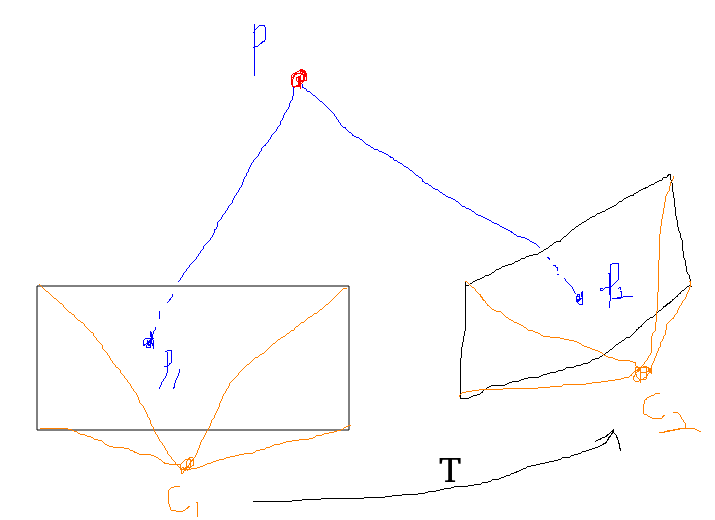 P
P1
P2
C1
C2
T